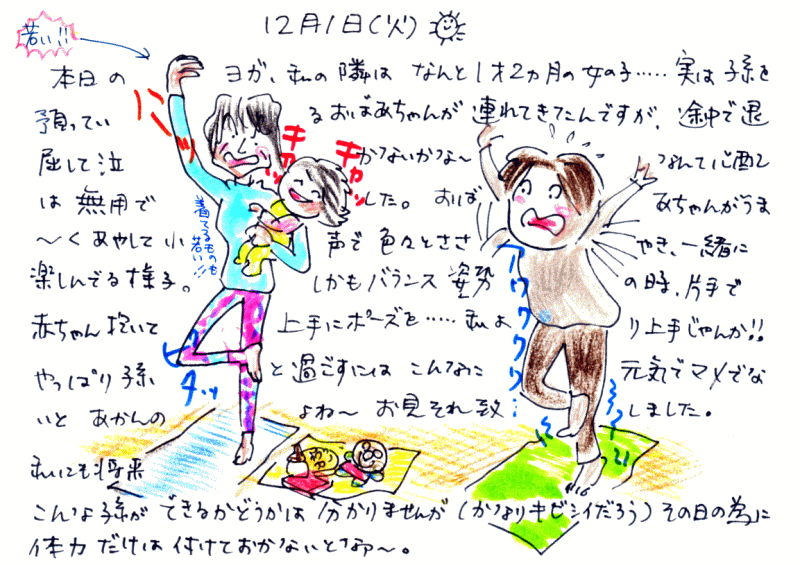 12月1日(火)
若い!!
本日の ヨガ、私の隣は なんと1才2ヵ月の女の子…‥実は子孫を
預ってい るおばあちゃんが連れてきたんですが、途中で退
屈して泣 かないかな〜 なんて心配
は無用で した。おば あちゃんがうま
〜くあやして小 声で色々とささ やき、一緒に
楽しんでる様子。 しかもバランス姿勢 の時、片手で
赤ちゃん抱いて 上手にポーズを…… 私よ り上手じゃんか!!
やっぱり孫 と過ごすには こんなに 元気でマメでな
いと あかんの よね〜 お見それ致 しました。
私にも将来
こんな孫が できるかどうかは 分かりませんが(かなりキビシイだろう)その日の為に
体力だけは付けておかないとなァ〜。
キャッ
キャッ
着てるものも
若い!!
ピタッ
アワワワワ